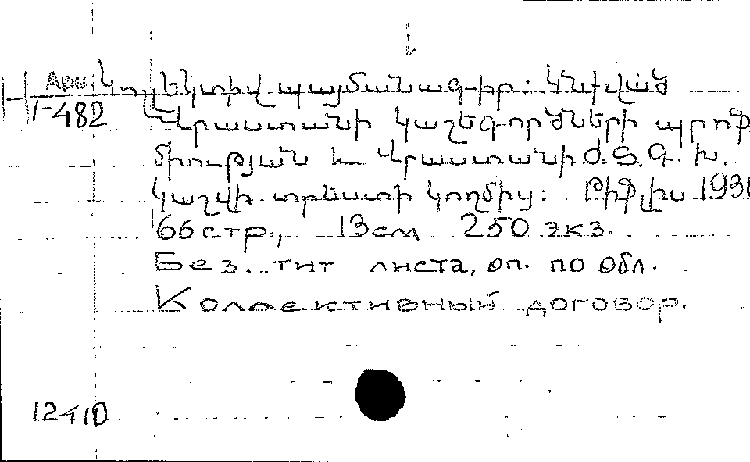 Арм Կոլեկտիվ պայմանագիր: Կնքված
1-482 Վրաստանի կաշեգործների պրոֆ
միության և Վրաստանի Ժ. Տ. Գ. Խ.
կաշվի տրեստի կողմից: Թիֆլիս 1931
66 стр., 13 см 250 экз.
Без. тит листа, оп. по обл.
Коллективный договор.
12410